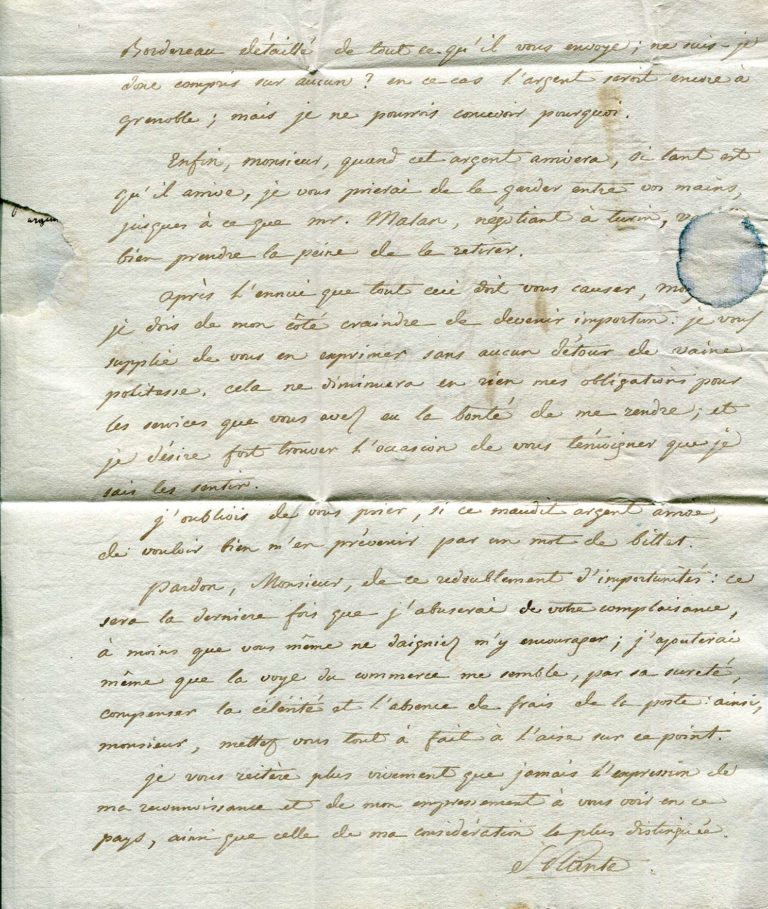 Bordereau détaillé de tout ce qu'il vous envoye; ne suis-je
donc compris sur aucun? en ce cas l'argent seroit encore à
grenoble; mais je ne pourrois concevoir pourquoi.
Enfin, monsieur, quand cet argent arrivera, si tant est
qu'il arrive, je vous prierai de le garder entre vos mains,
jusques à ce que mr. Malan, négotiant à turin,
bien prendre la peine de le retirer.
argen
après l'ennui que tout ceci doit vous causer,
je dois de mon côté craindre de devenir importun: je vous
supplie de vous en exprimer sans aucun détour de vaine
politesse. cela ne diminuera en rien mes obligations pour
les services que vous avez eu la bonté de me rendre; et
je désire fort trouver l'occasion de vous témoigner que je
sais les sentir.
j'oubliois de vous prier, si ce maudit argent arrive,
de vouloir bien m'en prévenir par un mot de billet.
pardon, Monsieur, de ce redoublement d'importunités: ce
sera la derniere fois que j'abuserai de votre complaisance,
à moins que vous même ne daigniez m'y encourager; j'ajouterai
même que la voye du commerce me semble, par sa sureté,
compenser la célérité et l'absence de frais de la poste: ainsi,
monsieur, mettez vous tout à fait à l'aise sur ce point.
je vous réitère plus vivement que jamais l'expression de
ma reconnoissance et de mon empressement à vous voir en ce
pays, ainsi que celle de ma considération la plus distinguée.